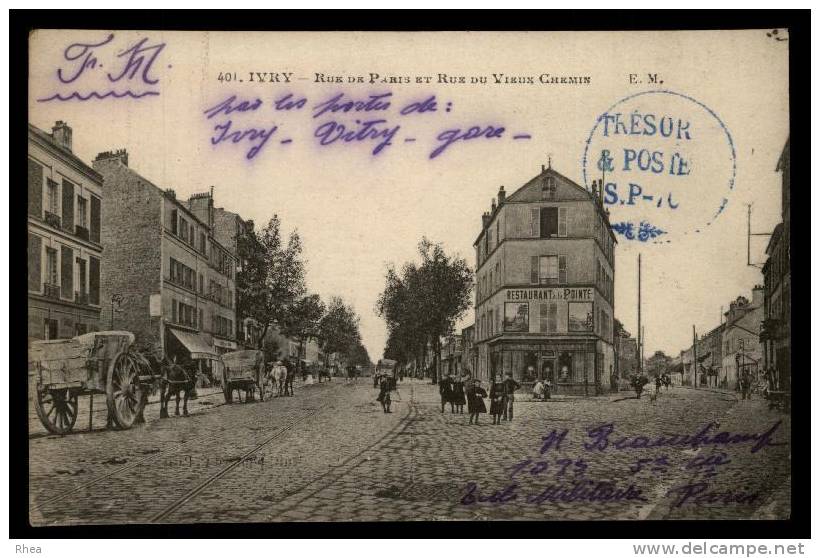 F. M.
401. IVRY — RUE DE PARIS ET RUE DU VIEUX CHEMIN E. M.
par les portes de :
Ivry - Vitry - gare -
TRÉSOR
& POSTE
S.P-
RESTAURANT DE LA POINTE
Beauchamp
5e
Ecole Militaire Paris
Rhea
http://www.delcampe.net